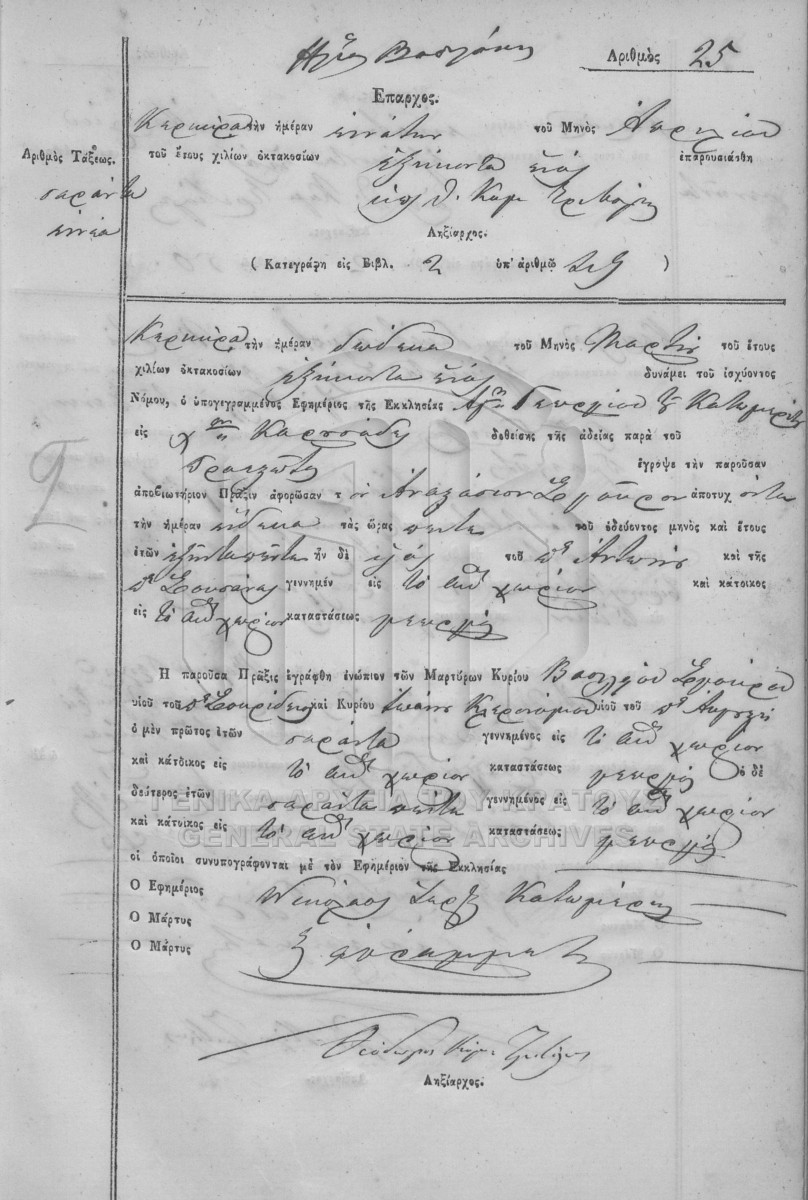 Ἀριθμὸς 25
Ἔπαρχος.
Κερκύρα τὴν ἡμέραν ἐννάτην τοῦ Μηνὸς Ἀπριλίου
Ἀριθμὸς Τάξεως.
σαράντα
ἐννέα
τοῦ ἔτους χιλίων ὀκτακοσίων ἑξήκοντα ἑνός ἐπαρουσιάσθη
Ληξίαρχος.
( Κατεγράφη εἰς Βιβλ. 2 ὑπ' ἀριθμῷ )
Κερκύρα, τὴν ἡμέραν δώδεκα τοῦ Μηνὸς Μαρτίου τοῦ ἔτους
χιλίων ὀκτακοσίων ἑξήκοντα ἑνός δυνάμει τοῦ ἰσχύοντος
Νόμου, ὁ ὑπογεγραμμένος Ἐφημέριος τῆς Ἐκκλησίας Γεωργίου
εἰς Καρουσάδες δοθείσης τῆς ἀδείας παρὰ τοῦ
ἔγραψε τὴν παροῦσαν
ἀποβιωτήριον Πρᾶξιν ἀφορῶσαν τ ὸν Ἀναστάσιον Σγοῦρον ἀποτυχ όντα
τὴν ἡμέραν ἕνδεκα τὰς ὥρας πέντε τοῦ ὁδεύοντος μηνὸς καὶ ἔτους
ἐτῶν ἑξῆντα πέντε ἦν δὲ υἱὸς τοῦ πτ Ἀντωνίου καὶ τῆς
πτ Σουσάνας γεννημέν εἰς τὸ αὐτὸ χωρίον καὶ κάτοικος
εἰς τὸ αὐτὸ χωρίον καταστάσεως γεωργός
Ἡ παροῦσα Πρᾶξις ἐγράφθη ἐνώπιον τῶν Μαρτύρων Κυρίου Βασιλείου Σγούρου
υἱοῦ τοῦ πτ Σπυρίδωνος καὶ Κυρίου Ἰωάννη Κληρονόμου υἱοῦ τοῦ πτ
ὁ μὲν πρῶτος ἐτῶν σαράντα γεννημένος εἰς τὸ αὐτὸ χωρίον
καὶ κάτοικος εἰς τὸ αὐτὸ χωρίον καταστάσεως γεωργός ὁ δὲ
δεύτερος ἐτῶν σαράντα πέντε γεννημένος εἰς τὸ αὐτὸ χωρίον
καὶ κάτοικος εἰς τὸ αὐτὸ χωρίον καταστάσεως γεωργός
οἱ ὁποῖοι συνυπογράφονται μὲ τὸν Ἐφημέριον τῆς Ἐκκλησίας
Ὁ Ἐφημέριος Νικόλαος Ἱερεὺς Κατωμέρης
Ὁ Μάρτυς
Ὁ Μάρτυς ἀγράμματοι
Ληξίαρχος.
ΓΕΝΙΚΑ ΑΡΧΕΙΑ ΤΟΥ ΚΡΑΤΟΥΣ
GENERAL STATE ARCHIVES